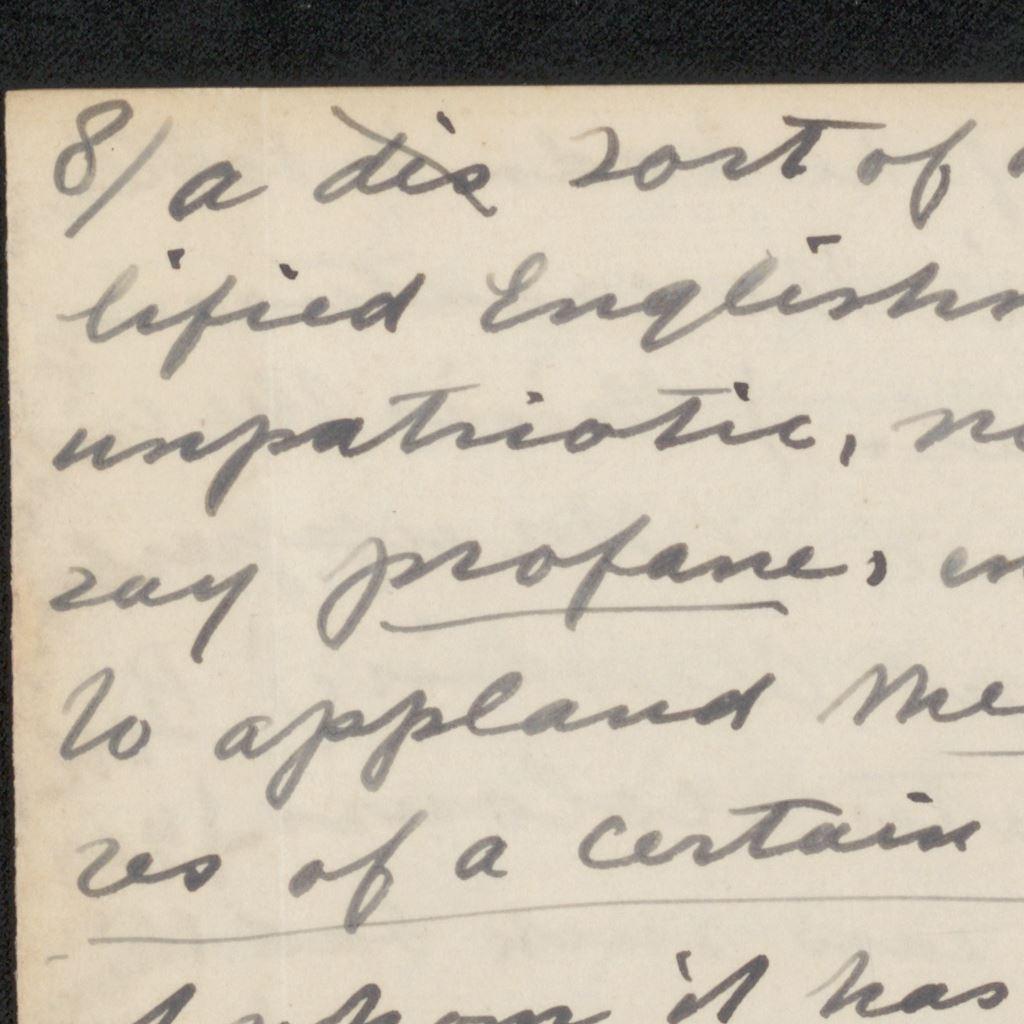 8/ a dis sort of
lified English
unpatriotic,
say profane,
to applaud the
res of a certain
whom it has